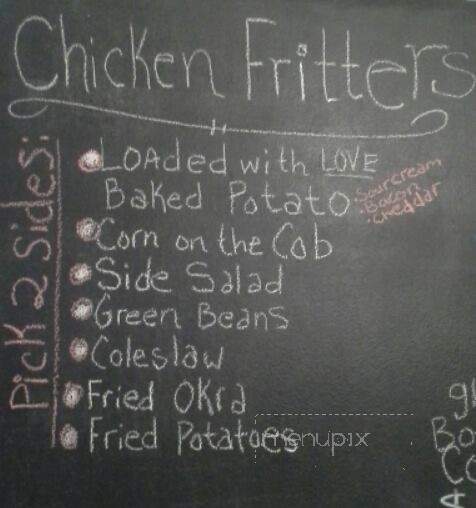 Chicken Fritters
Pick 2 Sides:
LOADed with LOVE
Baked Potato
·Sourcream
·Bacon
·cheddar
Corn on the Cob
Side Salad
Green Beans
Coleslaw
Fried OKra
Fried Potatoes
menupix